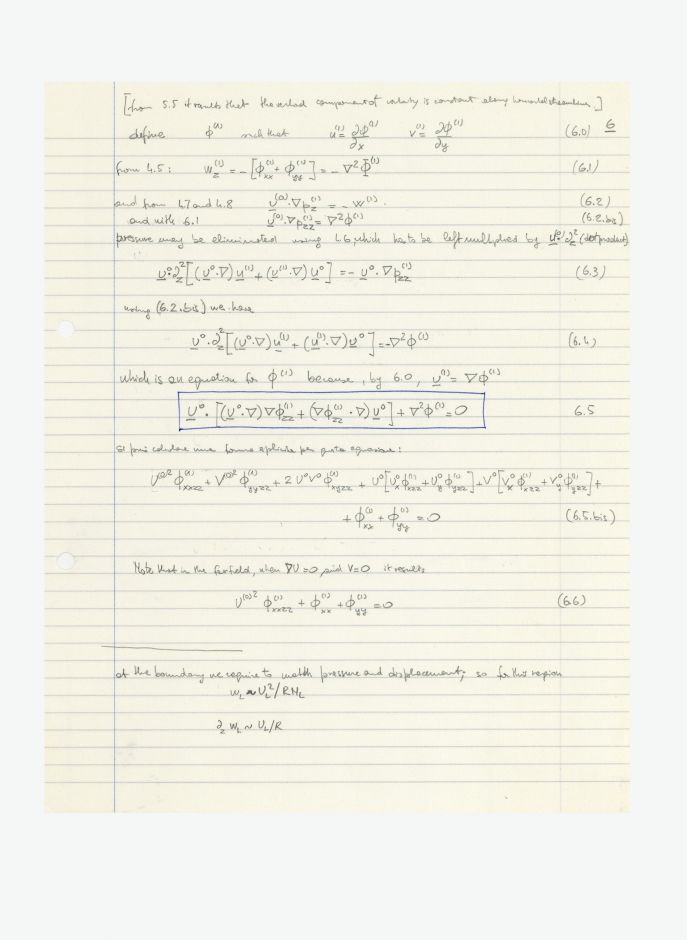 [from 5.5 it results that the vertical component of vorticity is constant along horizontal streamlines.]
define φ⁽¹⁾ such that u⁽¹⁾ = ∂φ⁽¹⁾/∂x v⁽¹⁾ = ∂φ⁽¹⁾/∂y (6.0) 6
from 4.5: w_z⁽¹⁾ = -[φ_xx⁽¹⁾ + φ_yy⁽¹⁾] = -∇²φ⁽¹⁾ (6.1)
and from 4.7 and 4.8 U⁽⁰⁾·∇p_z⁽¹⁾ = -w⁽¹⁾. (6.2)
and with 6.1 U⁽⁰⁾·∇p_zz⁽¹⁾ = ∇²φ⁽¹⁾ (6.2.bis)
pressure may be eliminated using 4.6 which has to be left multiplied by U⁰·∂_z² (dot product)
U⁰·∂_z²[(U⁰·∇)u⁽¹⁾ + (u⁽¹⁾·∇)U⁰] = -U⁰·∇p_zz⁽¹⁾ (6.3)
using (6.2.bis) we have
U⁰·∂_z²[(U⁰·∇)u⁽¹⁾ + (u⁽¹⁾·∇)U⁰] = -∇²φ⁽¹⁾ (6.4)
which is an equation for φ⁽¹⁾ because, by 6.0, u⁽¹⁾ = ∇φ⁽¹⁾
U⁰·[(U⁰·∇)∇φ_zz⁽¹⁾ + (∇φ_zz⁽¹⁾·∇)U⁰] + ∇²φ⁽¹⁾ = 0 6.5
si può calcolare una forma esplicita per questa equazione:
U⁽⁰⁾² φ_xxzz⁽¹⁾ + V⁽⁰⁾² φ_yyzz⁽¹⁾ + 2U⁰V⁰φ_xyzz⁽¹⁾ + U⁰[U_x⁰φ_xzz⁽¹⁾ + U_y⁰φ_yzz⁽¹⁾] + V⁰[V_x⁰φ_xzz⁽¹⁾ + V_y⁰φ_yzz⁽¹⁾] +
+ φ_xx⁽¹⁾ + φ_yy⁽¹⁾ = 0 (6.5.bis)
Note that in the farfield, when ∇U = 0 and V = 0 it results
U⁽⁰⁾² φ_xxzz⁽¹⁾ + φ_xx⁽¹⁾ + φ_yy⁽¹⁾ = 0 (6.6)
at the boundary we require to match pressure and displacement; so for this region
w_L ~ U_L²/RN_L
∂_z w_L ~ U_L/R